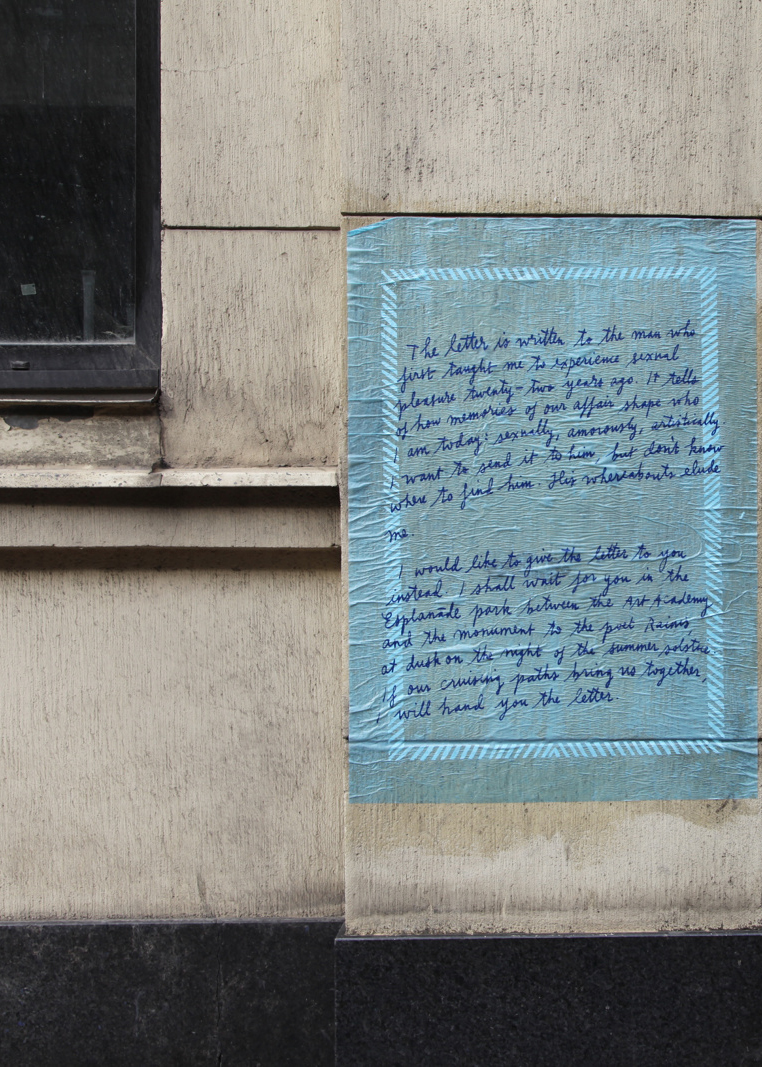 The letter is written to the man who
first taught me to experience sexual
pleasure twenty-two years ago. It tells
of how memories of our affair shape who
I am today: sexually, amorously, artistically
I want to send it to him, but don't know
where to find him. His whereabouts elude
me.
I would like to give the letter to you
instead. I shall wait for you in the
Esplanāde park between the Art Academy
and the monument to the poet Rainis
at dusk on the night of the summer solstice.
If our cruising paths bring us together,
I will hand you the letter.